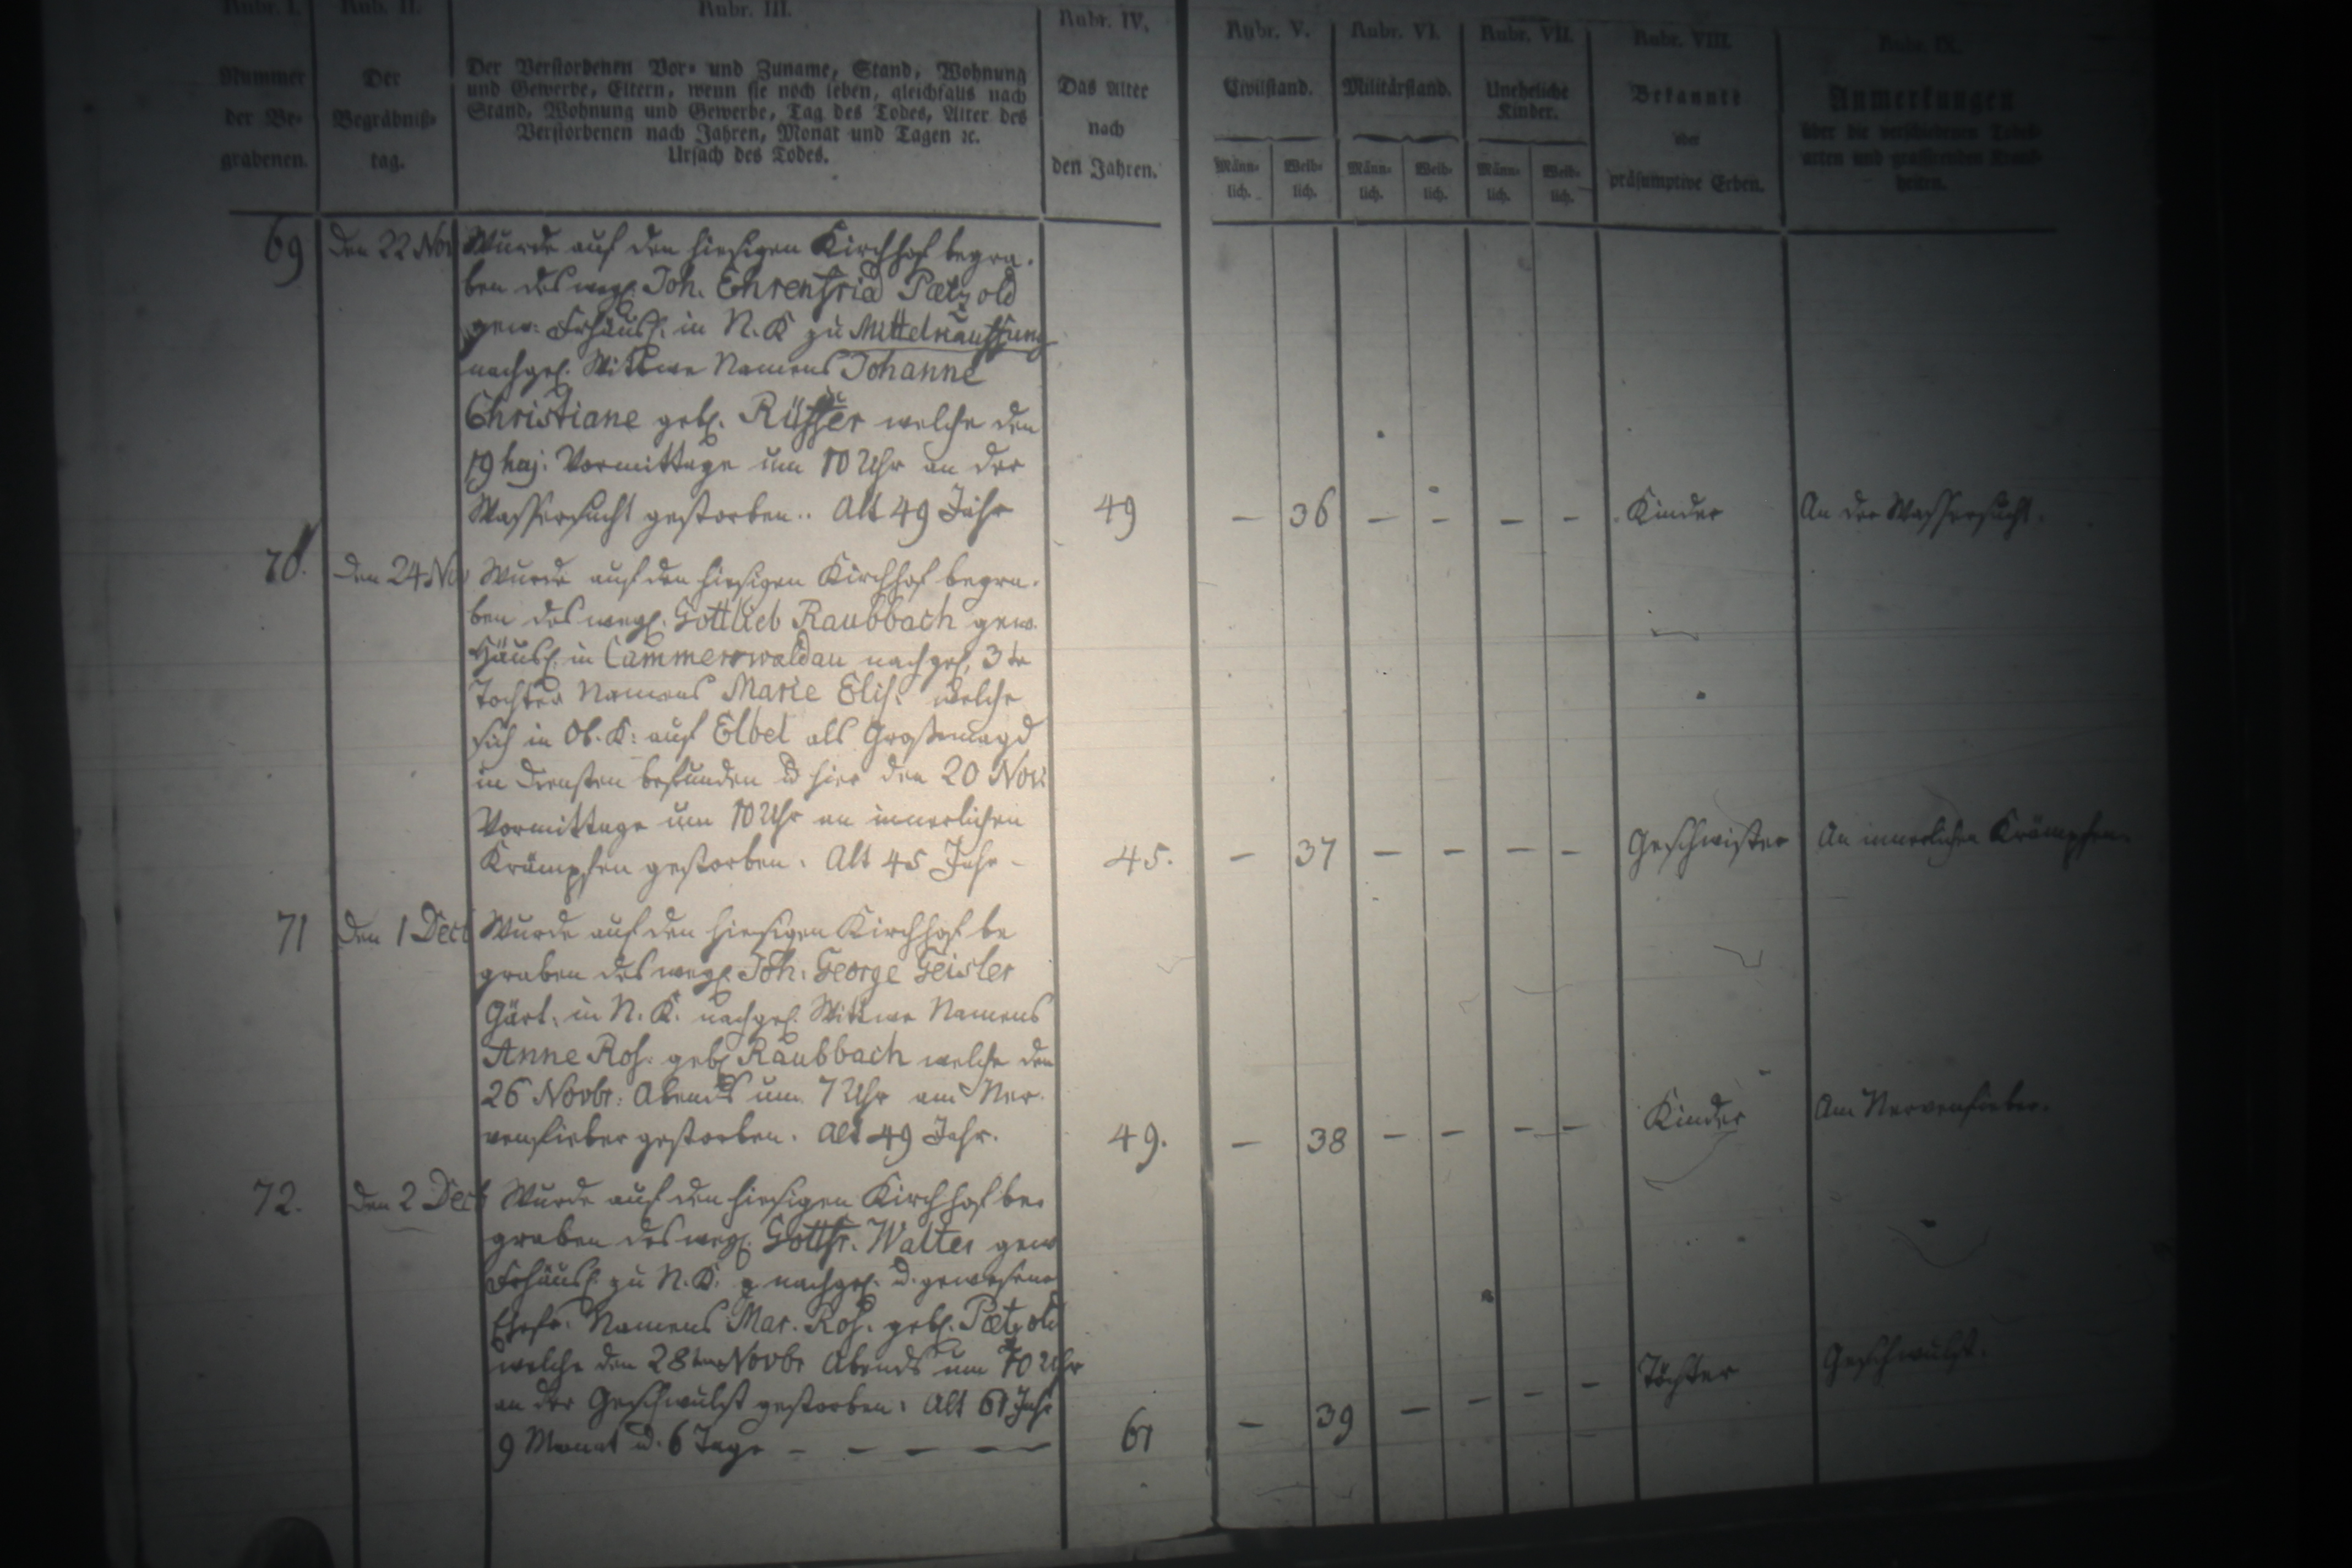 Rubr. I.
Nummer
der Be-
grabenen.
Rub. II.
Der
Begräbniß-
tag.
Rubr. III.
Der Verstorbenen Vor- und Zuname, Stand, Wohnung
und Gewerbe, Eltern, wenn sie noch leben, gleichfalls nach
Stand, Wohnung und Gewerbe, Tag des Todes, Alter des
Verstorbenen nach Jahren, Monat und Tagen ꝛc.
Ursach des Todes.
Rubr. IV.
Das Alter
nach
den Jahren.
Rubr. V.
Civilstand.
Männ-
lich.
Weib-
lich.
Rubr. VI.
Militärstand.
Männ-
lich.
Weib-
lich.
Rubr. VII.
Uneheliche
Kinder.
Männ-
lich.
Weib-
lich.
Rubr. VIII.
Bekannte
oder
präsumptive Erben.
Rubr. IX.
Anmerkungen
über die verschiedenen Todes-
arten und grassirenden Krank-
heiten.
69
den 22 Nov
Wurde auf den hiesigen Kirchhof begra-
ben des wegl. Joh. Ehrenfried Pætzold
gew: Frhäusl. in N. K zu Mittelkauffung
nachgel. Wittwe Namens Johanne
Christiane gebl. Rüffer welche den
19 huj: Vormittage um 10 Uhr an der
Wassersucht gestorben.. Alt 49 Jahr
49
— 36 — — — —
Kinder
An der Wassersucht.
70.
den 24 Nov
Wurde auf den hiesigen Kirchhof begra-
ben des wegl. Gottlieb Raubbach gew.
Häusl. in Cammerswaldau nachgel. 3te
Tochter Namens Marie Elis: welche
sich in Ob. K: auf Elbel als Großemagd
in Diensten befunden u hier den 20 Nov:
Vormittage um 10 Uhr an innerlichen
Krämpfen gestorben. Alt 45 Jahr -
45.
— 37 — — — —
Geschwister
An innerlichen Krämpfen.
71
den 1 Decb
Wurde auf den hiesigen Kirchhof be
graben des wegl. Joh: George Geisler
Gärt. in N. K. nachgel. Wittwe Namens
Anne Ros. gebl Raubbach welche den
26 Novbr: Abends um 7 Uhr am Ner-
venfieber gestorben. Alt 49 Jahr.
49.
— 38 — — — —
Kinder
Am Nervenfieber.
72.
den 2 Decb
Wurde auf den hiesigen Kirchhof be-
graben des wegl. Gottfr. Walter gew
Frhäusl. zu N. K. nachgel. u. gewesene
Ehefr. Namens Mar. Ros. gebl. Pætzold
welche den 28ten Novbr Abends um 10 Uhr
an der Geschwulst gestorben: Alt 61 Jahr
9 Monat u. 6 Tage - — — —
61
— 39 — — — —
Töchter
Geschwulst.